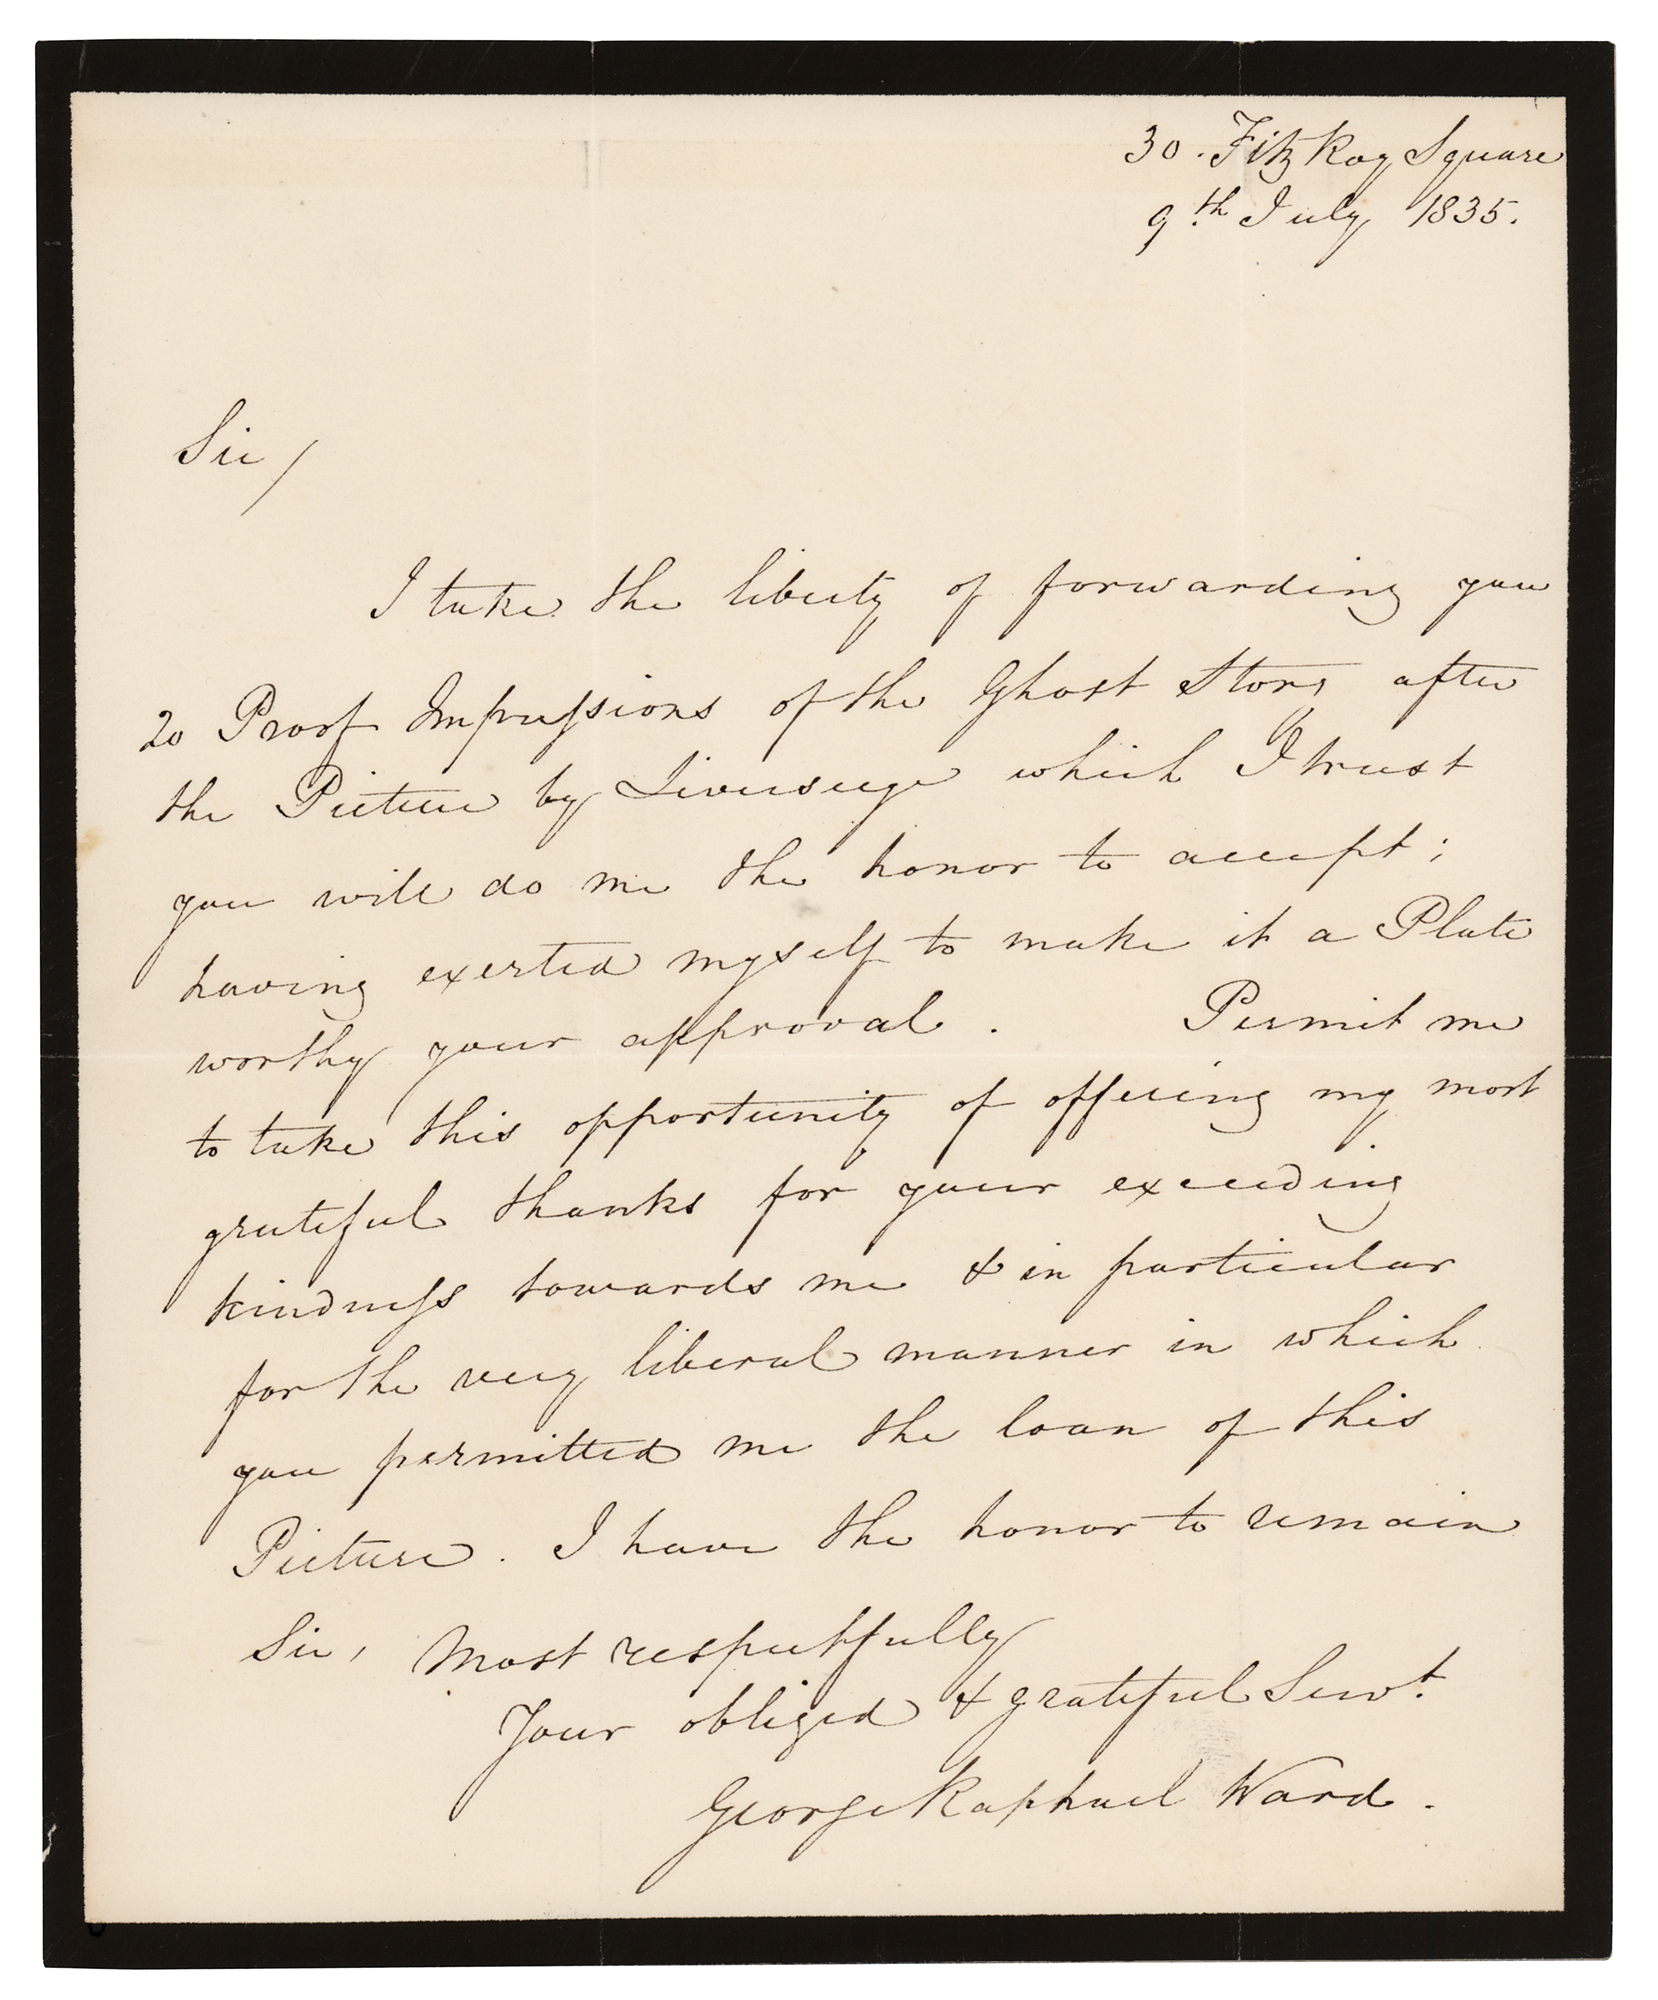 30. Fitz Roy Square
9th July 1835.
Sir/
I take the liberty of forwarding you
20 Proof Impressions of the Ghost Story after
the Picture by Liverseege which I trust
you will do me the honor to accept;
having exerted myself to make it a Plate
worthy your approval. Permit me
to take this opportunity of offering my most
grateful thanks for your exceeding
kindness towards me & in particular
for the very liberal manner in which
you permitted me the loan of this
Picture. I have the honor to remain
Sir, Most respectfully
Your obliged & grateful Servt.
George Raphael Ward.